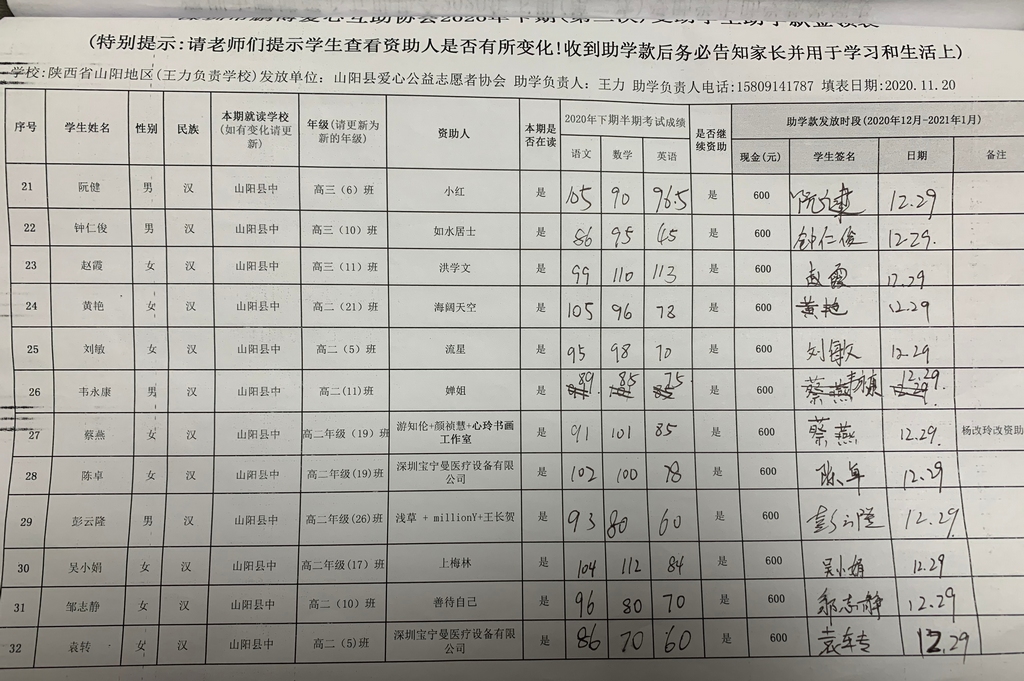 爱心互助协会2020年下期(第二次)受助学生助学款签领表
(特别提示:请老师们提示学生查看资助人是否有所变化!收到助学款后务必告知家长并用于学习和生活上)
学校:陕西省山阳地区(王力负责学校)发放单位: 山阳县爱心公益志愿者协会 助学负责人: 王力 助学负责人电话:15809141787 填表日期:2020.11.20
序号 学生姓名 性别 民族 本期就读学校(如有变化请更新) 年级(请更新为新的年级) 资助人 本期是否在读 2020年下期半期考试成绩 语文 数学 英语 是否继续资助 助学款发放时段(2020年12月-2021年1月) 现金(元) 学生签名 日期 备注
21 阮健 男 汉 山阳县中 高三(6)班 小红 是 105 90 96.5 是 600 阮健 12.29
22 钟仁俊 男 汉 山阳县中 高三(10)班 如水居士 是 86 95 45 是 600 钟仁俊 12.29.
23 赵霞 女 汉 山阳县中 高三(11)班 洪学文 是 99 110 113 是 600 赵霞 12.29
24 黄艳 女 汉 山阳县中 高二(21)班 海阔天空 是 105 96 78 是 600 黄艳 12.29
25 刘敏 女 汉 山阳县中 高二(5)班 流星 是 95 98 70 是 600 刘敏 12.29
26 韦永康 男 汉 山阳县中 高二(11)班 婵姐 是 89 85 75 是 600 蔡燕 12.29.
27 蔡燕 女 汉 山阳县中 高二年级(19)班 游知伦+颜祯慧+心玲书画工作室 是 91 101 85 是 600 蔡燕 12.29. 杨改玲改资助
28 陈卓 女 汉 山阳县中 高二年级(19)班 深圳宝宁曼医疗设备有限公司 是 102 100 78 是 600 陈卓 12.29
29 彭云隆 男 汉 山阳县中 高二年级(26)班 浅草 + millionY+王长贺 是 93 80 60 是 600 彭云隆 12.29
30 吴小娟 女 汉 山阳县中 高二年级(17)班 上梅林 是 104 112 84 是 600 吴小娟 12.29
31 邹志静 女 汉 山阳县中 高二(10)班 善待自己 是 96 80 70 是 600 邹志静 12.29
32 袁转 女 汉 山阳县中 高二(5)班 深圳宝宁曼医疗设备有限公司 是 86 70 60 是 600 袁转 12.29